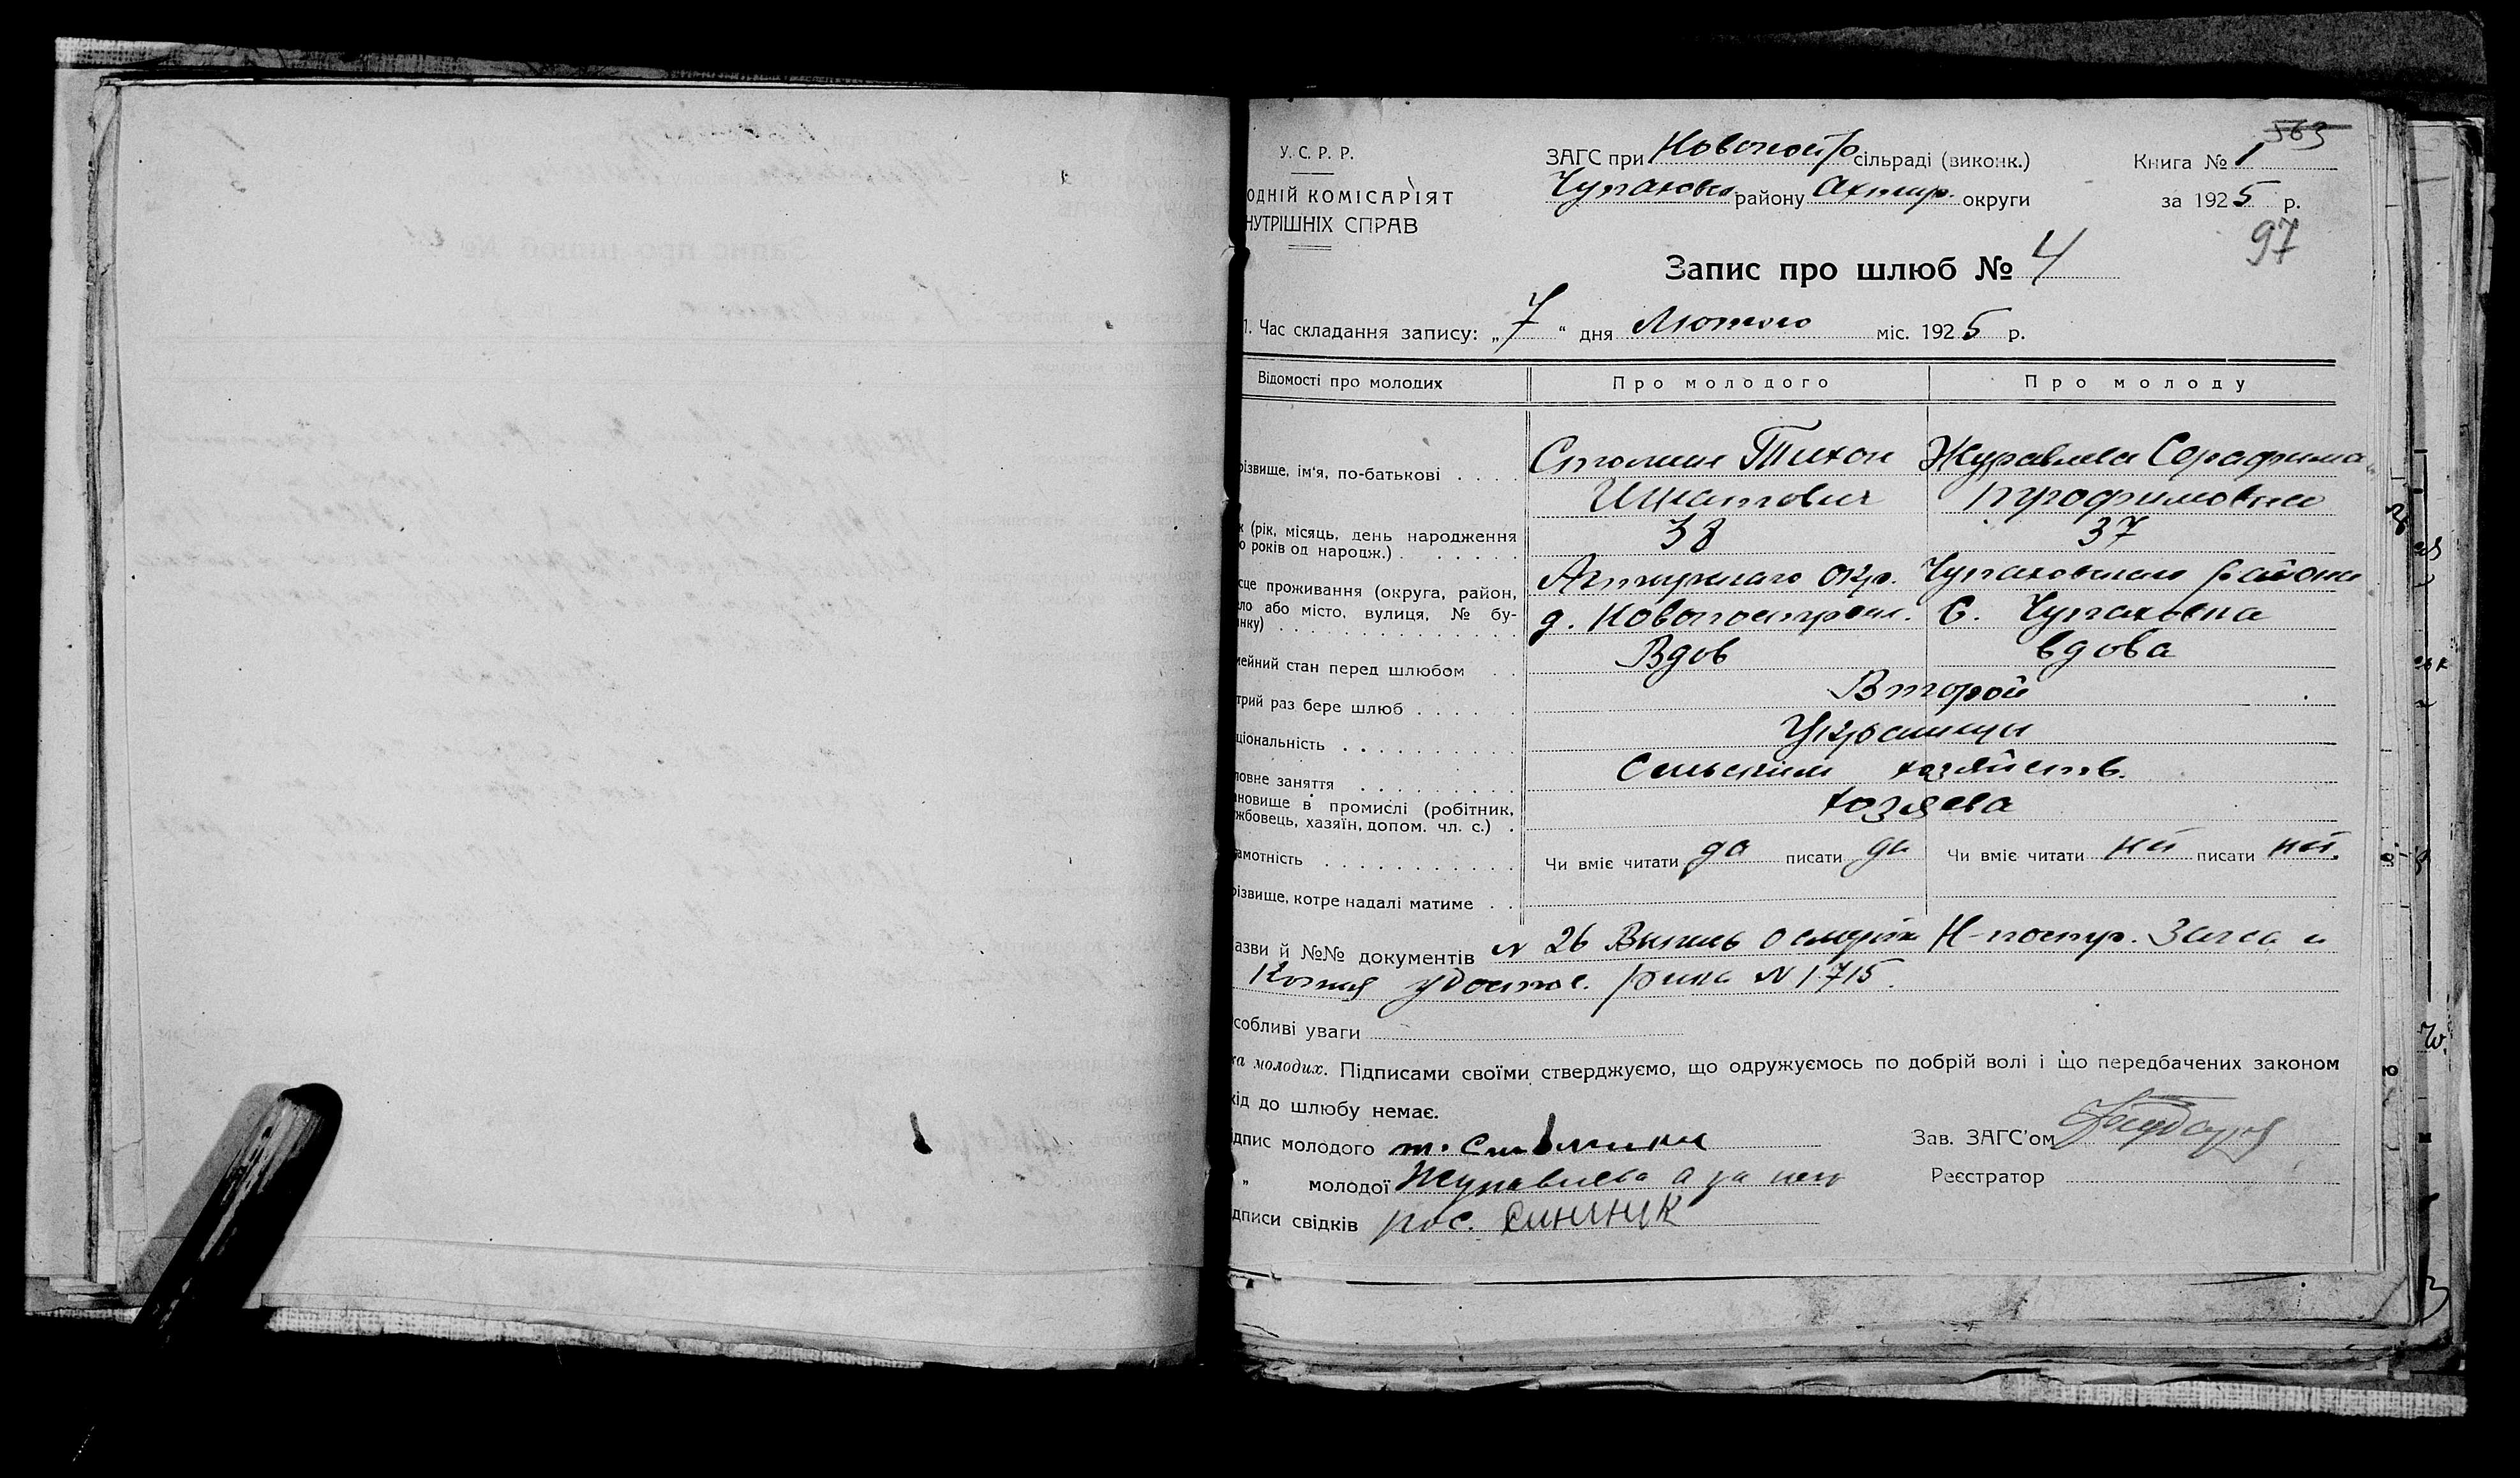 563
У. С. Р. Р.
ОДНІЙ КОМІСАРІЯТ
НУТРІШНІХ СПРАВ
ЗАГС при Новопостр сільраді (виконк.)
Чупаховск. району Ахтыр. округи
Книга № 1
за 1925 р.
97
Запис про шлюб № 4
1. Час складання запису: „7“ дня Лютого міс. 1925 р.
Відомості про молодих
Про молодого
Про молоду
різвище, ім'я, по-батькові . . . .
Тихон
Журавлева Серафима
Игнатович
Трофимовна
к (рік, місяць, день народження
о років од народж.) . . . . . .
38
37
сце проживання (округа, район,
ло або місто, вулиця, № бу-
инку) . . . . . . . . . . . .
Ахтырскаго Окр.
Чупаховскаго района
д. Новопостроен.
С. Чупаховка
мейний стан перед шлюбом . .
Вдов
вдова
трий раз бере шлюб . . . . .
Второй
ціональність . . . . . . . . .
Украинцы
ловне заняття . . . . . . . . .
Сельским хозяйств.
ановище в промислі (робітник,
жбовець, хазяїн, допом. чл. с.) .
хозяева
амотність . . . . . . . . . .
Чи вміє читати да писати да
Чи вміє читати нет писати нет.
різвище, котре надалі матиме . .
азви й №№ документів № 26 Выпись о смерти Н-постр. Загса и
Копия удостов. рика № 1715.
собливі уваги
та молодих. Підписами своїми стверджуємо, що одружуємось по добрій волі і що передбачених законом
кід до шлюбу немає.
дпис молодого т.
Зав. ЗАГС'ом
„ молодої Журавлева а за нея
Реєстратор
дписи свідків рос. Синчник